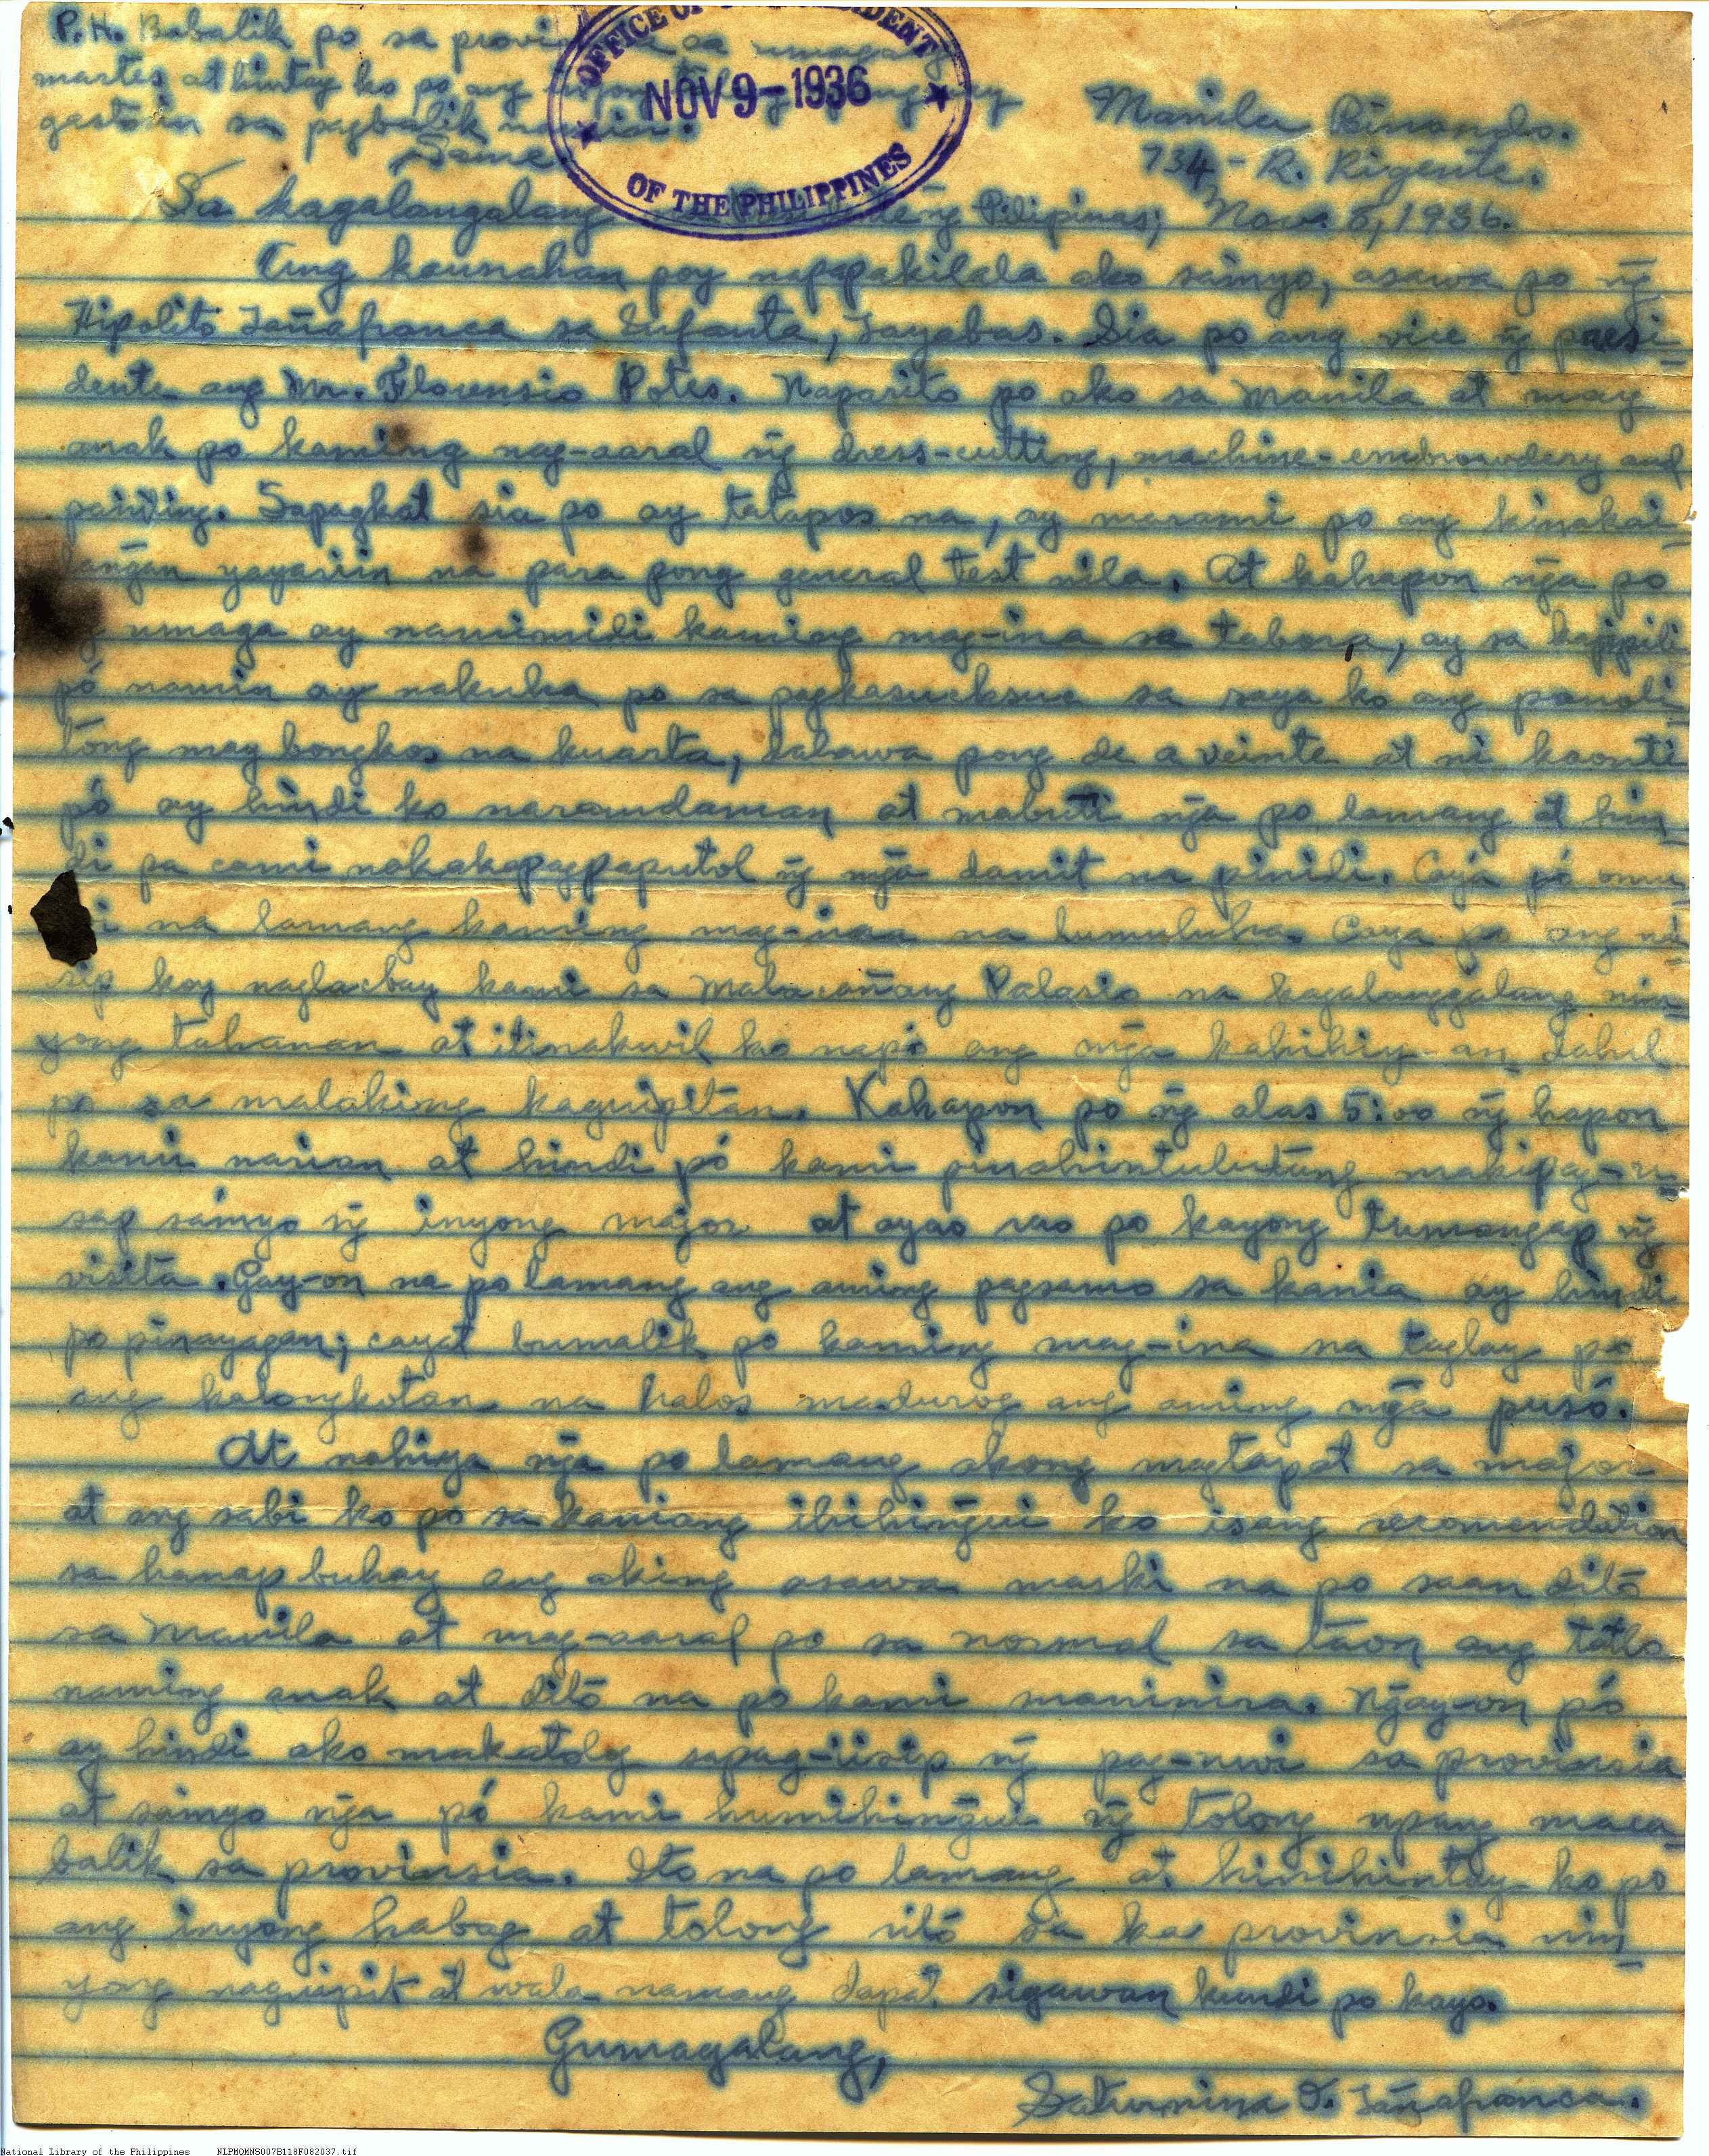 P.H. Babalik po sa provin sa umaga
martes at hintay ko po ang
gastusin sa pagbalik
Same.
OFFICE OF THE PRESIDENT
NOV 9-1936
OF THE PHILIPPINES
Manila Binondo.
734 - R. Rigente.
Nov. 8, 1936.
Sa kagalanggalang ng Pilipinas;
Ang kaunahan poy napapakilala ako sainyo, asawa po ng̃
Hipolito Tañafranca sa Infanta, Tayabas. Sia po ang vice ng̃ presi
dente ang Mr. Florensio Potes. Naparito po ako sa Manila at may
anak po kaming nag-aaral ng̃ dress-cutting, machine-embrowdery and
painting. Sapagkat sia po ay tatapos na, ay marami po ang kinakai
lang̃an yayariin na para pong general test nila. At kahapon ng̃a po
umaga ay namimili kaming mag-ina sa tabora, ay sa kapipili
pó namin ay nakuha po sa pagkasucksuc sa saya ko ang panoli
tong may bongkos na kuarta, dalawa pong de a veinte at ni kaonti
pó ay hindi ko naramdaman at mabuti ng̃a po lamang at hin
di pa cami nakakapagpaputol ng̃ mg̃a damit na pinili. Caya pó omu
i na lamang kaming mag-ina na lumuluha. Caya po ang ni
sip koy naglacbay kami sa Malacañang Palasio na kagalanggalang nin
yong tahanan at itinakwil ko napó ang mg̃a kahihiy-an dahil
po sa malaking kaguipitan. Kahapon po ng̃ alas 5:00 ng̃ hapon
kami narian at hindi pó kami pinahintulutang makipag-u
sap sainyo ng̃ inyong major at ayao rao po kayong tumangap ng̃
visita. Gay-on na po lamang ang aming pagsamo sa kania ay hindi
po pinayagan; cayat bumalik po kaming mag-ina na taglay po
ang kalongkotan na halos madurog ang aming mg̃a pusó.
At nahiya ng̃a po lamang akong magtapat sa major
at ang sabi ko po sa kaniang ihihing̃ui ko isang recomendation
sa hanap buhay ang aking asawa maski na po saan dito
sa Manila at mag-aaral po sa normal sa taon ang tatlo
naming anak at dito na po kami maninira. Ng̃ay-on pó
ay hindi ako makatolog sapag-iisip ng̃ pag-uwi sa provinsia
at sainyo ng̃a pó kami humihing̃ui ng̃ tolong upang maca
balik sa provinsia. Ito na po lamang at hinihintay ko po
ang inyong habag at tolong nitó sa ka provinsia nin
yong naguipit at wala namang dapat sigawan kundi po kayo.
Gumagalang,
Saturnina O. Tañafranca.
National Library of the Philippines NLPMQMNS007B118F082037.tif